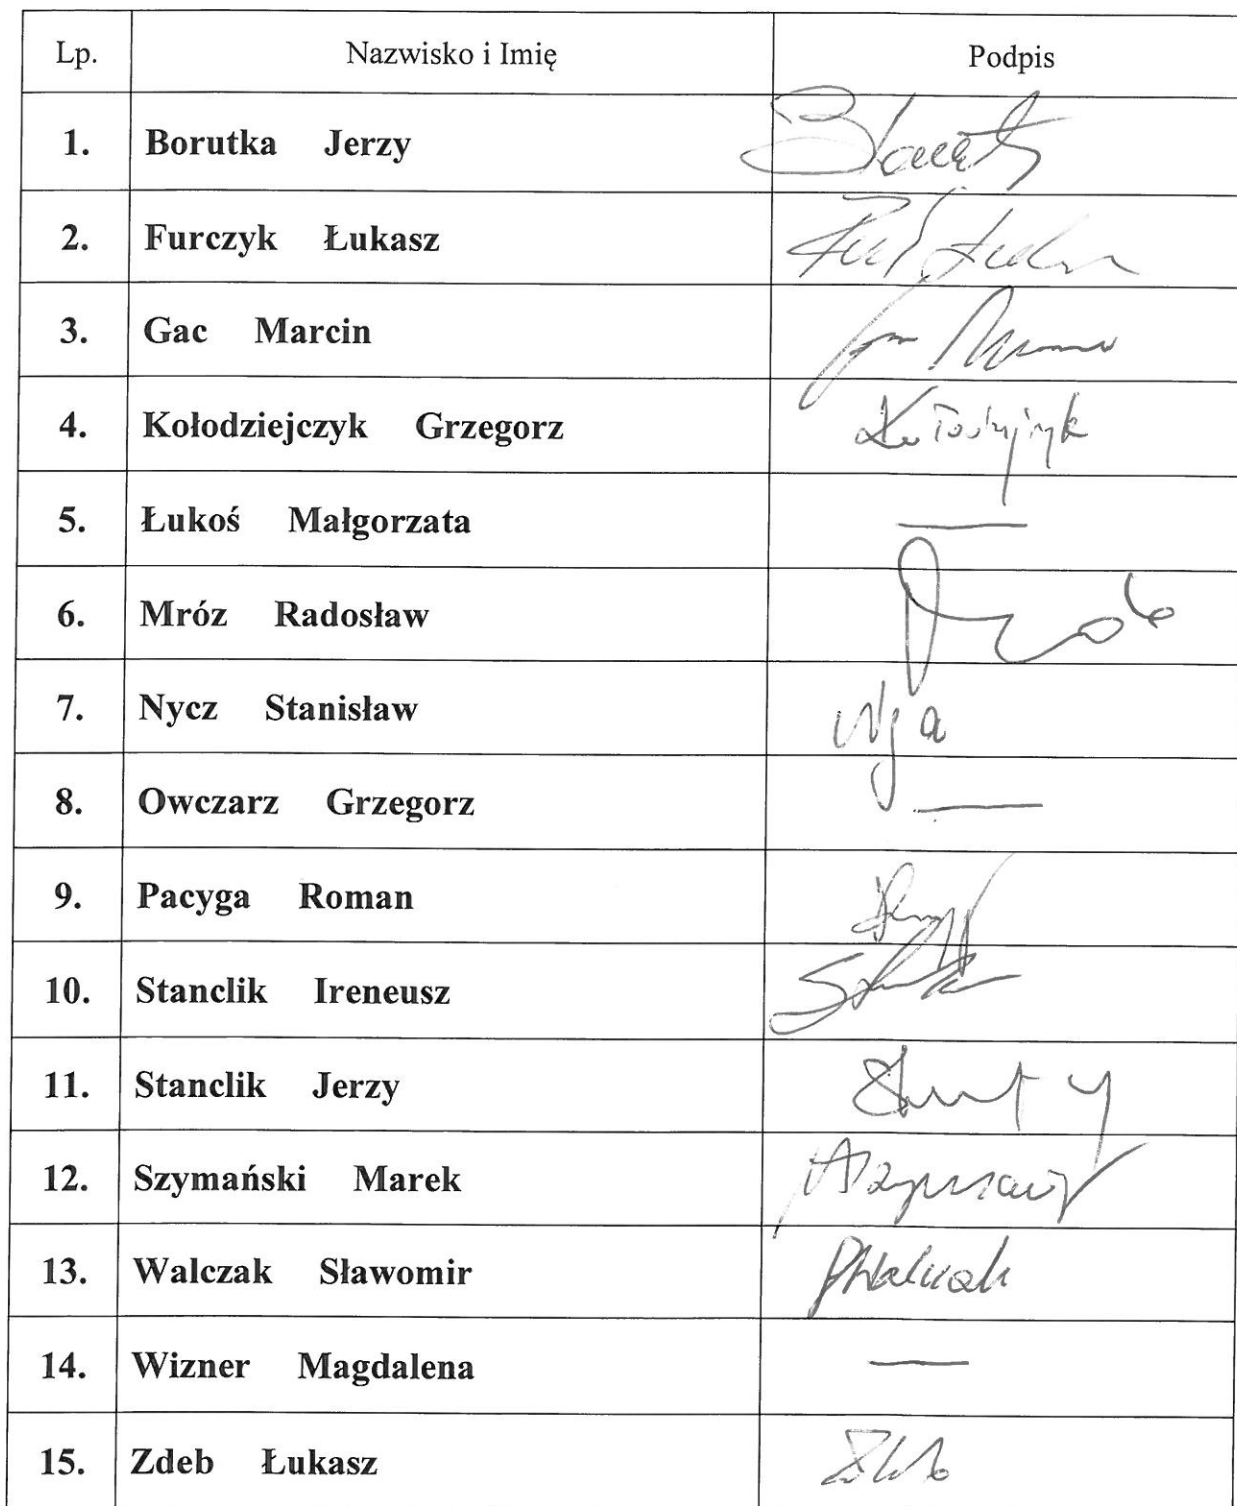 Lp. Nazwisko i Imię Podpis
1. Borutka Jerzy
2. Furczyk Łukasz
3. Gac Marcin
4. Kołodziejczyk Grzegorz Kołodziejczyk
5. Łukoś Małgorzata —
6. Mróz Radosław
7. Nycz Stanisław
8. Owczarz Grzegorz —
9. Pacyga Roman
10. Stanclik Ireneusz
11. Stanclik Jerzy
12. Szymański Marek
13. Walczak Sławomir
14. Wizner Magdalena —
15. Zdeb Łukasz